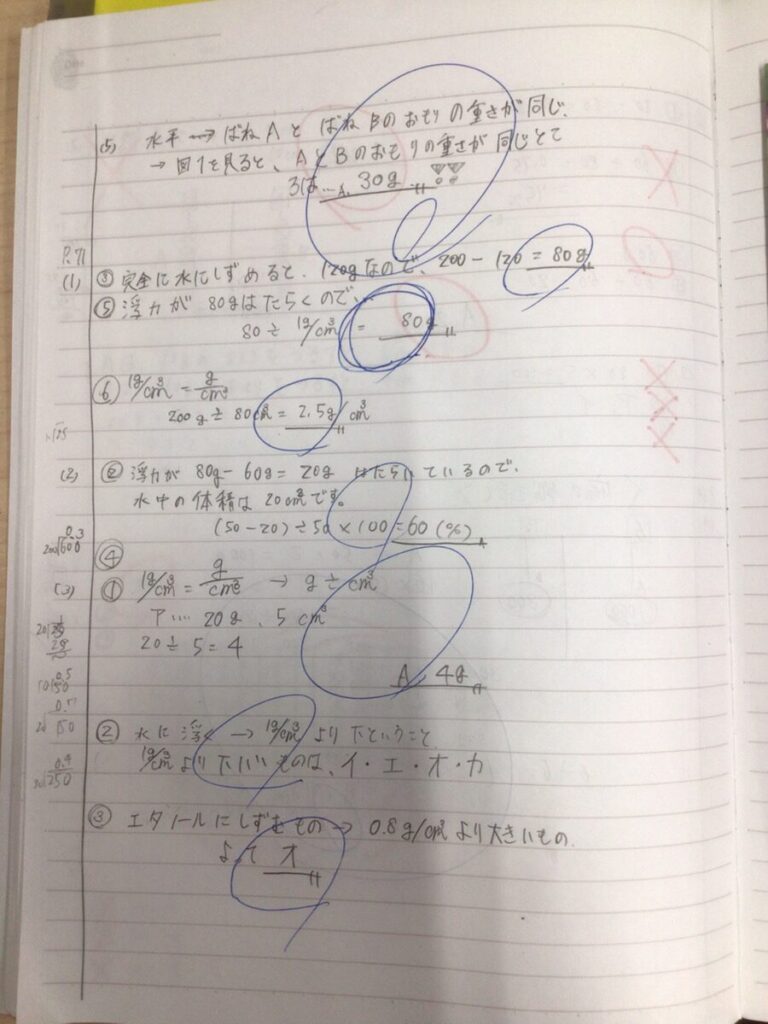 (5) 水平 → ばねAと ばねBのおもりの重さが同じ.
→ 図1を見ると、AとBのおもりの重さが同じとて
3は… A. 30g
P.71
(1) ③ 完全に水にしずめると、120gなので、200-120=80g
⑤ 浮力が 80gはたらくので、
80÷1g/cm³= 80g
⑥ 1g/cm³=g/cm³
200g÷80cm³=2.5g/cm³
(2) ② 浮力が 80g-60g=20g はたらいているので、
水中の体積は20cm³です。
(50-20)÷50×100=60(%)
④
(3) ① 1g/cm³=g/cm³ → g÷cm³
ア… 20g、5cm³
20÷5=4
A. 4g
② 水に浮く → 1g/cm³より下ということ
1g/cm³より下いいものは、イ・エ・オ・カ
③ エタノールにしずむもの → 0.8g/cm³より大きいもの
よって オ